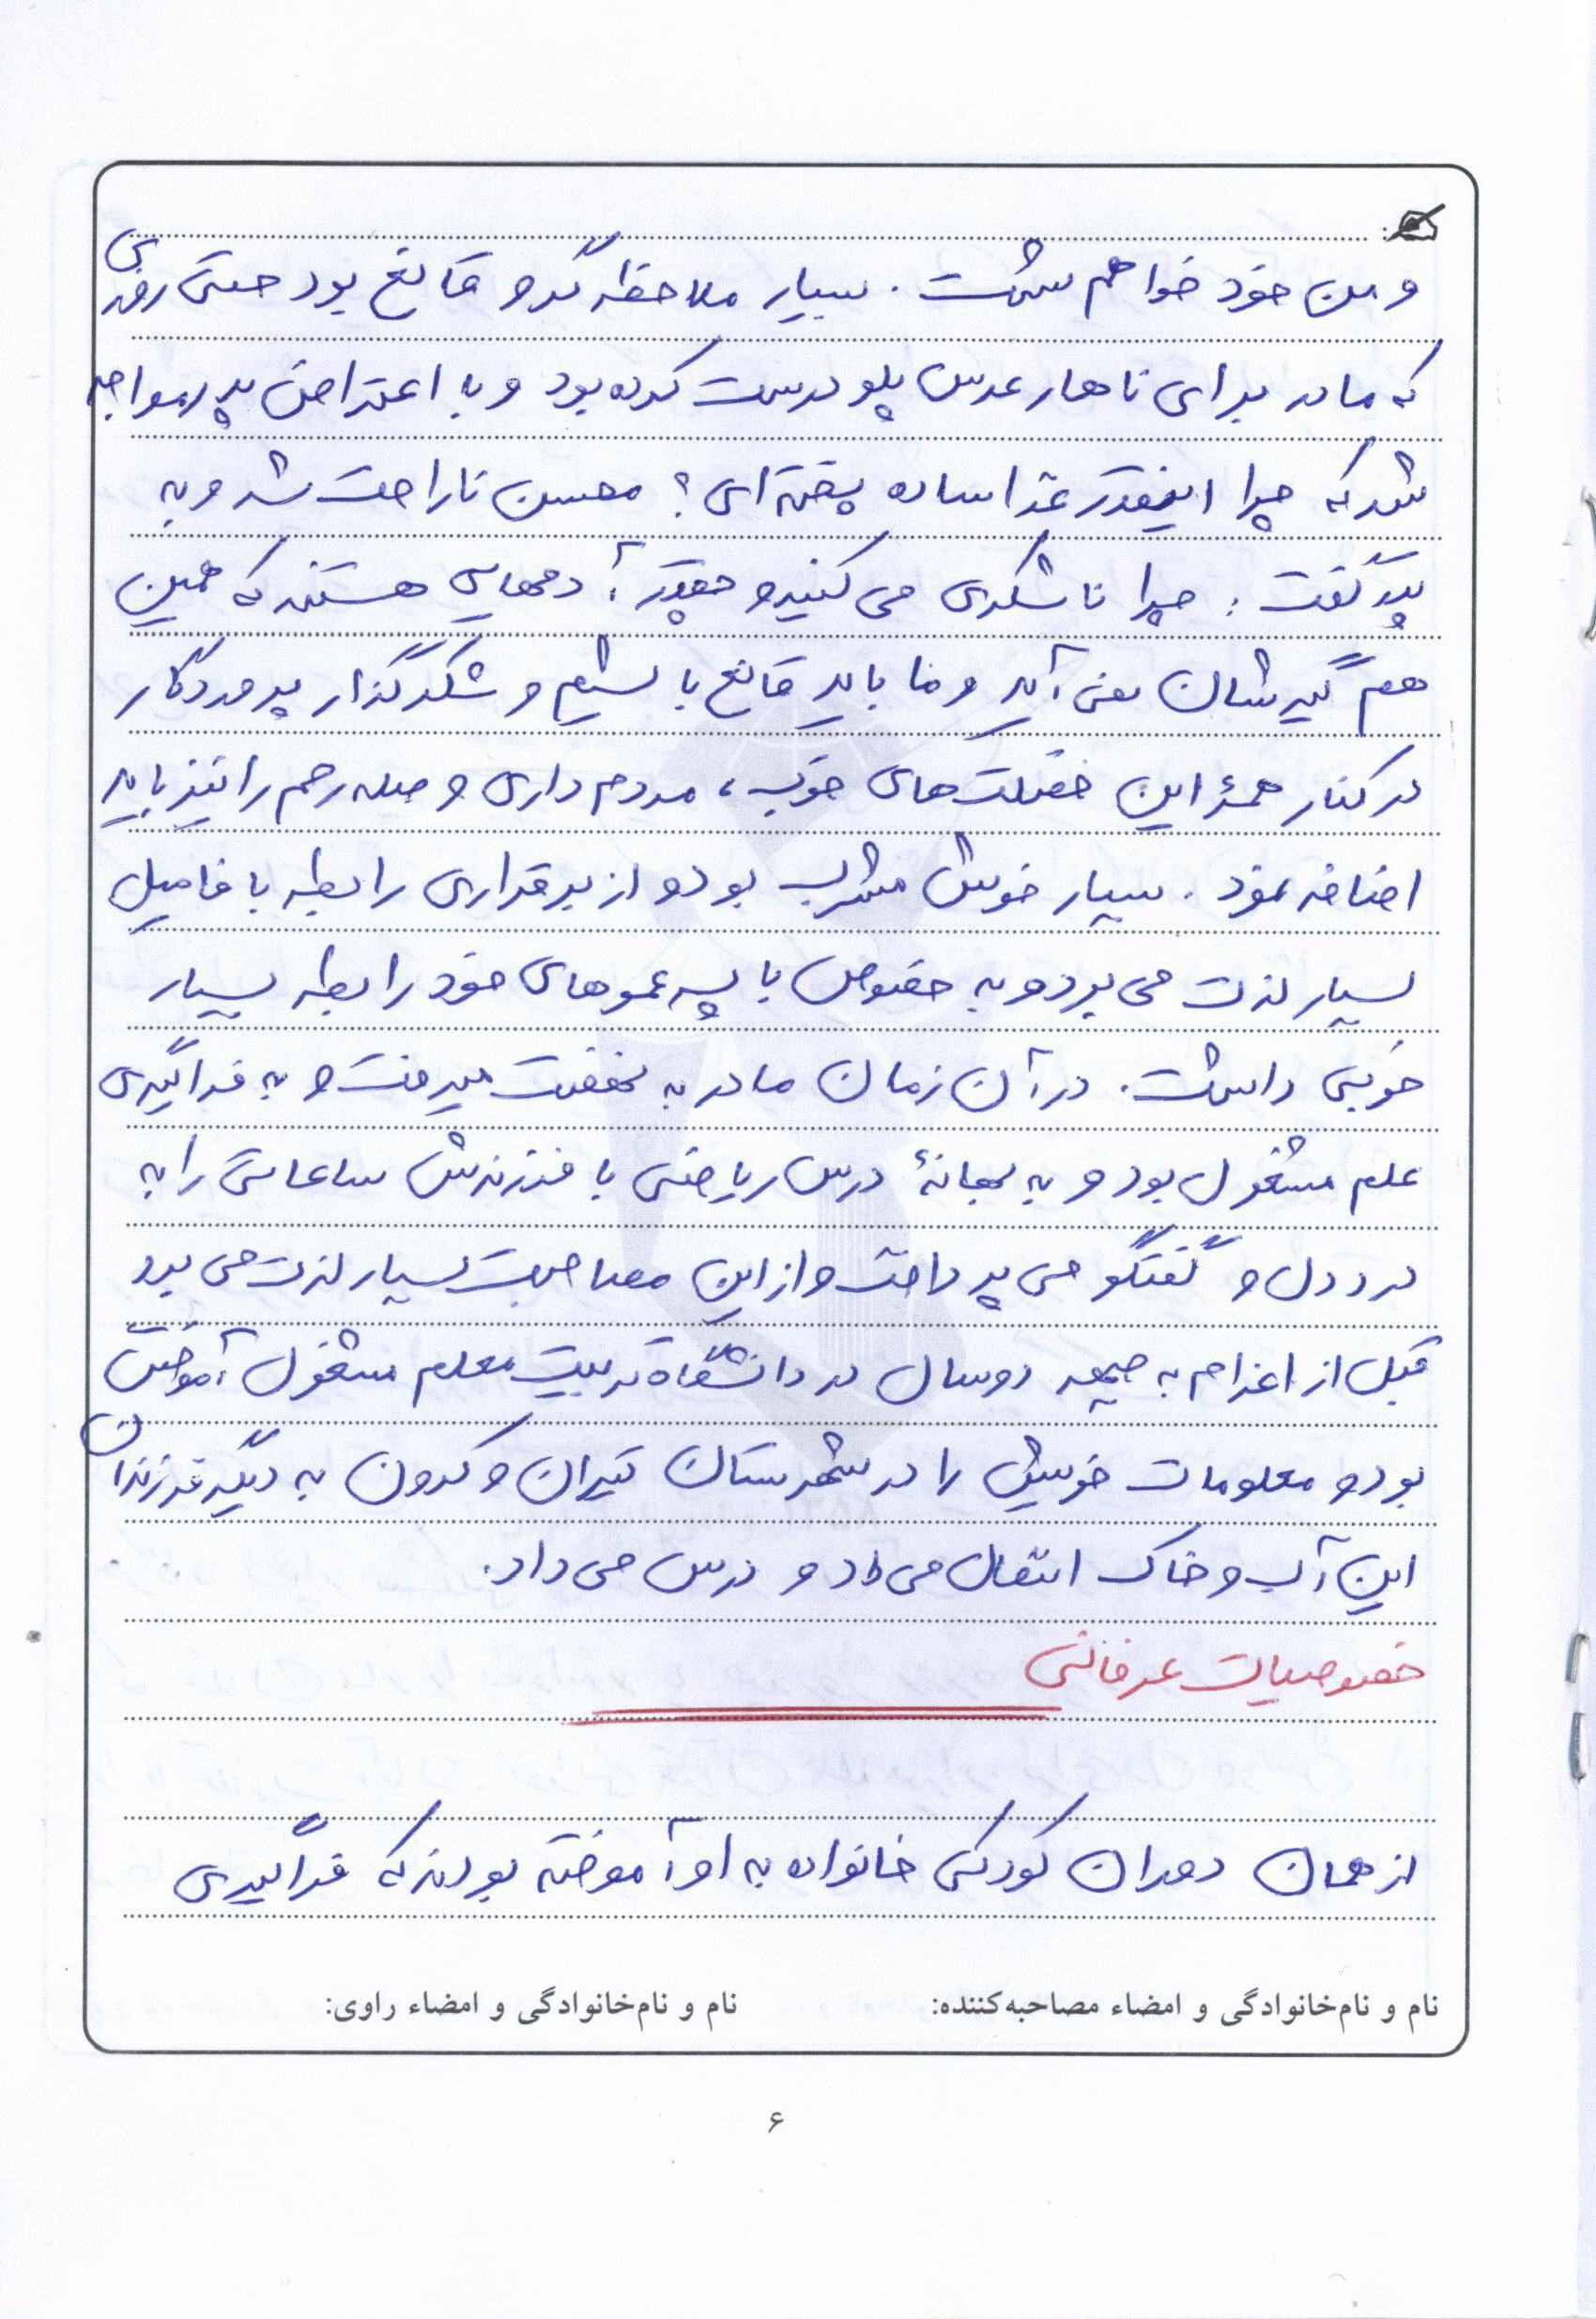 و من خود خواهم شست. بسیار ملاحظه گر و قانع بود حتی روزی
که مادر برای ناهار عدس پلو درست کرده بود و با اعتراض پدر مواجه
شد که چرا اینقدر غذا ساده پخته ای؟ محسن ناراحت شد و به
پدر گفت: چرا ناشکری می کنید و چقدر آدمهایی هستند که همین
هم گیرشان نمی آید و ما باید قانع باشیم و شکرگذار پروردگار
در کنار همهٔ این خصلت های خوب، مردم داری و صله رحم را نیز باید
اضافه نمود. بسیار خوش مشرب بود و از برقراری رابطه با فامیل
بسیار لذت می برد و به خصوص با پسر عموهای خود رابطه بسیار
خوبی داشت. در آن زمان مادر به نهضت میرفت و به فراگیری
علم مشغول بود و به بهانهٔ درس ریاضی با فرزندش ساعاتی را به
درد دل و گفتگو می پرداخت و از این مصاحبت بسیار لذت می برد
قبل از اعزام به جبهه دوسال در دانشگاه تربیت معلم مشغول آموختن
بود و معلومات خویش را در شهرستان تیران و کرون به دیگر فرزندان
این آب و خاک انتقال می داد و درس می داد.
خصوصیات عرفانی
از همان دوران کودکی خانواده به او آموخته بودند که فراگیری
نام و نام‌خانوادگی و امضاء مصاحبه‌کننده: نام و نام‌خانوادگی و امضاء راوی:
۶